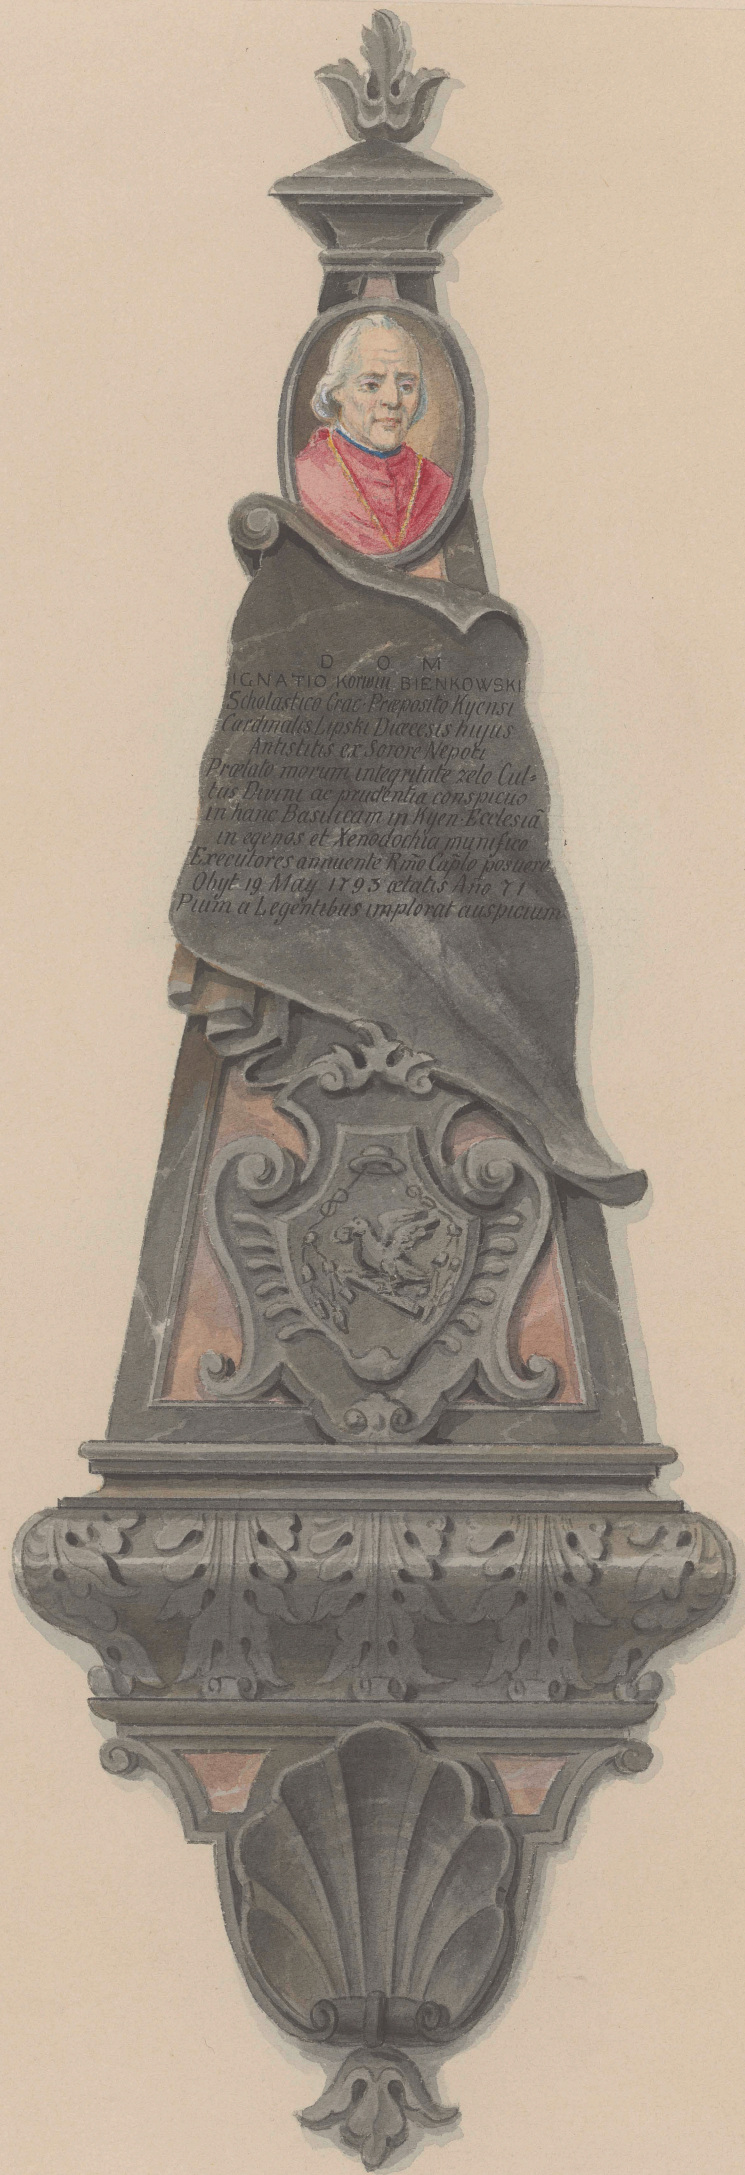 D O M
IGNATIO Korwin BIENKOWSKI
Scholastico Crac Præposito Kycensi
Cardinalis Lipski Diœcesis hujus
Antistitis ex Sorore Nepoti
Prælato morum integritate zelo Cul=
tus Divini ac prudentia conspicuo
in hanc Basilicam in Kycen Ecclesiã
in egenos et Xenodochia munifico
Executores annuente Rm̃o Cap̃lo posuere
Obyt 19 May 1793 ætatis Año 71
Pium a Legentibus implorat auspicium